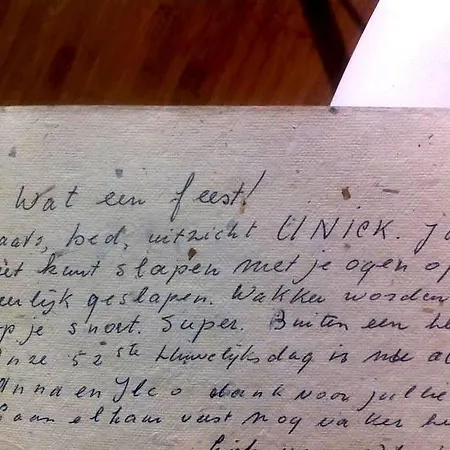 Wat een feest!
bed, uitzicht UNIEK.
kunt slapen met je ogen op
geslapen. Wakker worden
p je snort. Super. Buiten een
nze 52ste Huwelijksdag is
Anna en dank voor jullie
elkaar vast nog vaker